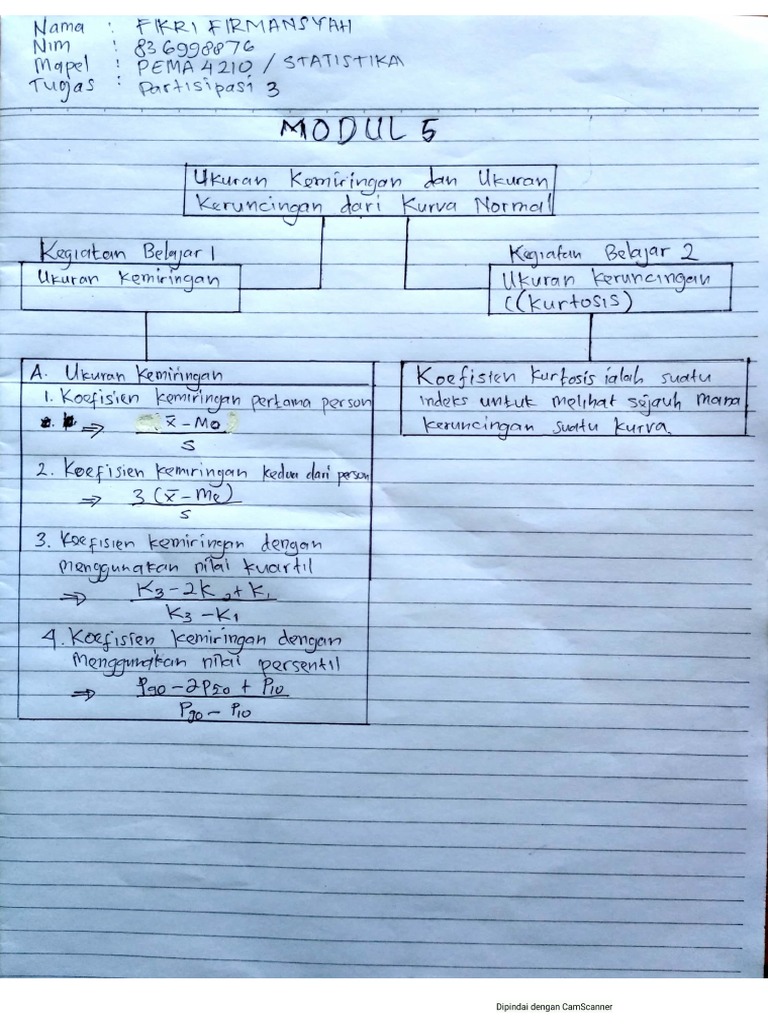 Nama : FIKRI FIRMANSYAH
Nim : 836998876
Mapel : PEMA 4210 / STATISTIKA
Tugas : Partisipasi 3
MODUL 5
Ukuran Kemiringan dan Ukuran
Keruncingan dari Kurva Normal
Kegiatan Belajar 1
Ukuran Kemiringan
Kegiatan Belajar 2
Ukuran Keruncingan
((Kurtosis)
A. Ukuran Kemiringan
1. Koefisien kemiringan pertama person
⇒ x̄ - Mo
S
2. Koefisien kemiringan kedua dari person
⇒ 3 (x̄ - Me)
S
3. Koefisien kemiringan dengan
menggunakan nilai kuartil
⇒ K3 - 2K2 + K1
K3 - K1
4. Koefisien kemiringan dengan
menggungkan nilai persentil
⇒ P90 - 2P50 + P10
P90 - P10
Koefisien kurtosis ialah suatu
indeks untuk melihat sejauh mana
keruncingan suatu kurva.
Dipindai dengan CamScanner